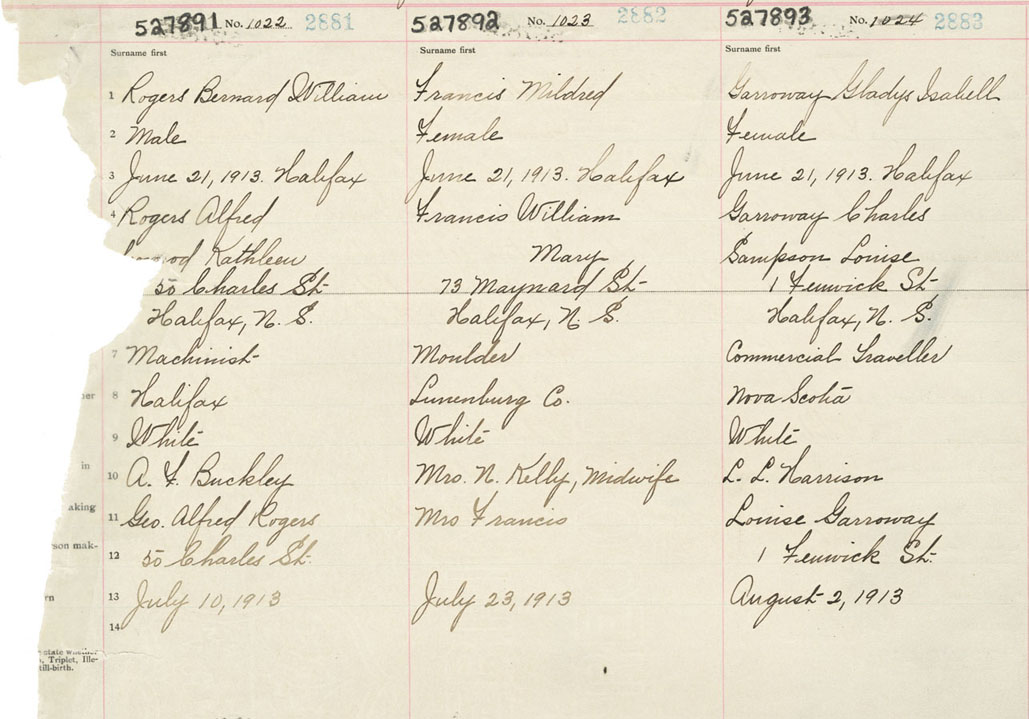 527891 No. 1022 2881
527892 No. 1023 2882
527893 No. 1024 2883
Surname first
Surname first
Surname first
1 Rogers Bernard William
Francis Mildred
Garroway Gladys Isabell
2 Male
Female
Female
3 June 21, 1913. Halifax
June 21, 1913. Halifax
June 21, 1913. Halifax
4 Rogers Alfred
Francis William
Garroway Charles
Kathleen
Mary
Sampson Louise
50 Charles St.
73 Maynard St.
1 Fenwick St.
Halifax, N. S.
Halifax, N. S.
Halifax, N. S.
7 Machinist
Moulder
Commercial Traveller
8 Halifax
Lunenburg Co.
Nova Scotia
9 White
White
White
in
10 A. F. Buckley
Mrs. N. Kelly, Midwife
L. L. Harrison
aking
11 Geo. Alfred Rogers
Mrs Francis
Louise Garroway
son mak-
12 50 Charles St.
1 Fenwick St.
13 July 10, 1913
July 23, 1913
August 2, 1913
14
state whether
, Triplet, Ille-
till-birth.